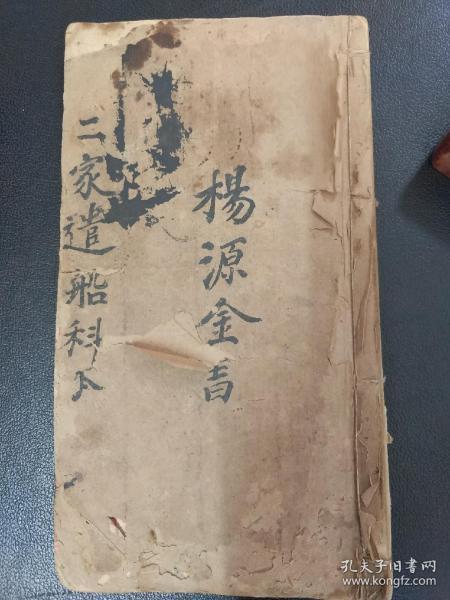 楊源金
二家遣船科
孔夫子旧书网
www.kongfz.com